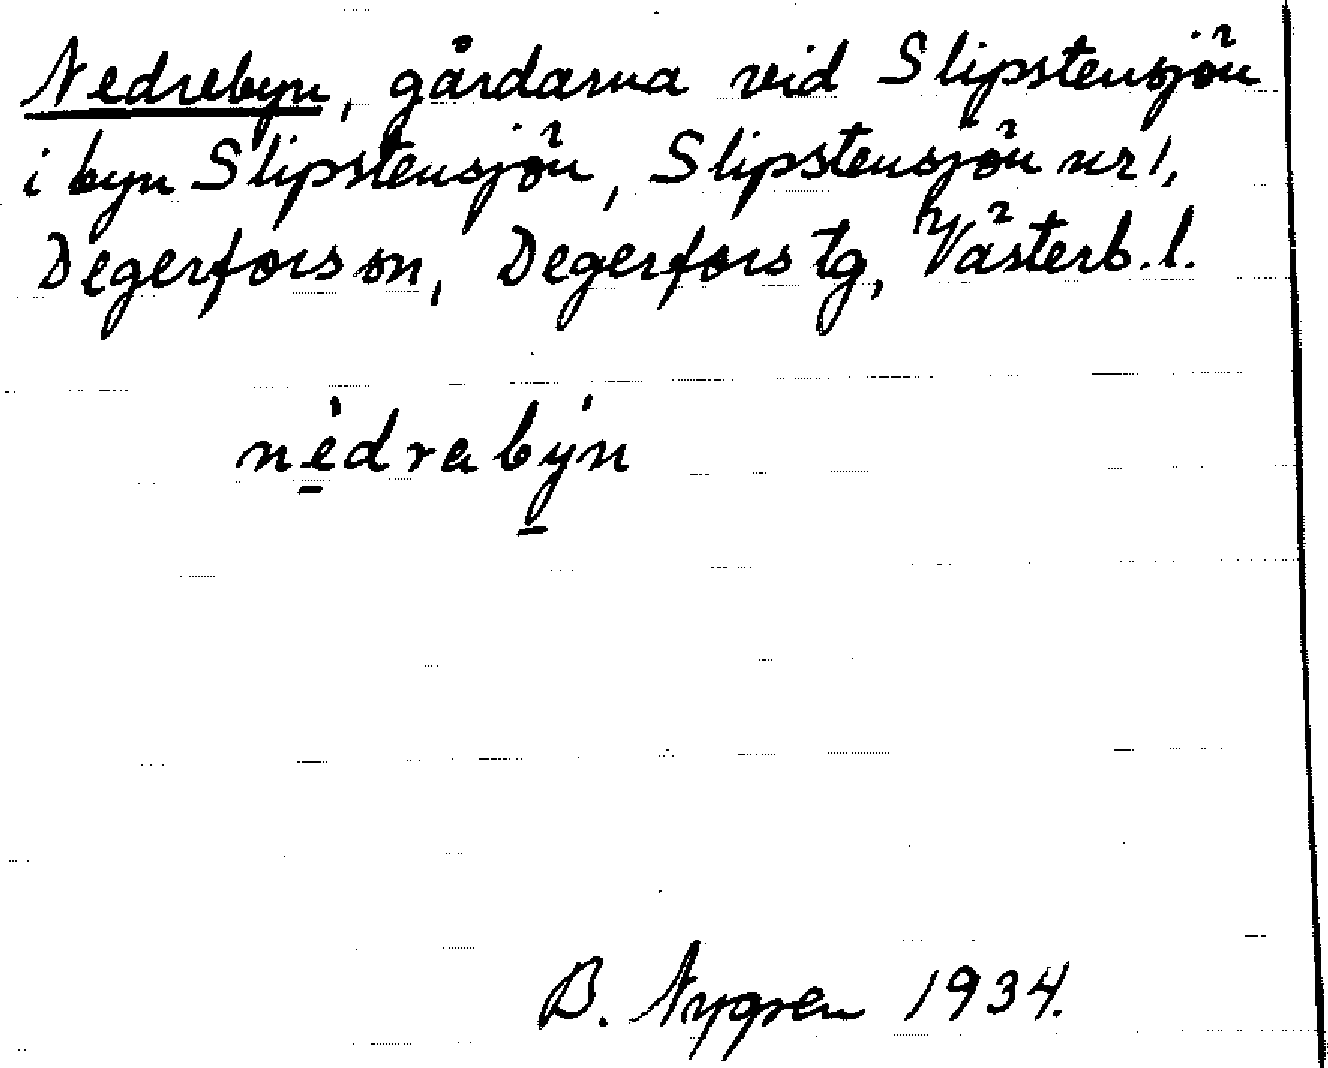 Nedrebyn, gårdarna vid Slipstensjön
i byn Slipstensjön, Slipstensjön nr 1,
Degerfors sn, Degerfors tg, Västerb. l.
nèdrabýn
B. Nygren 1934.